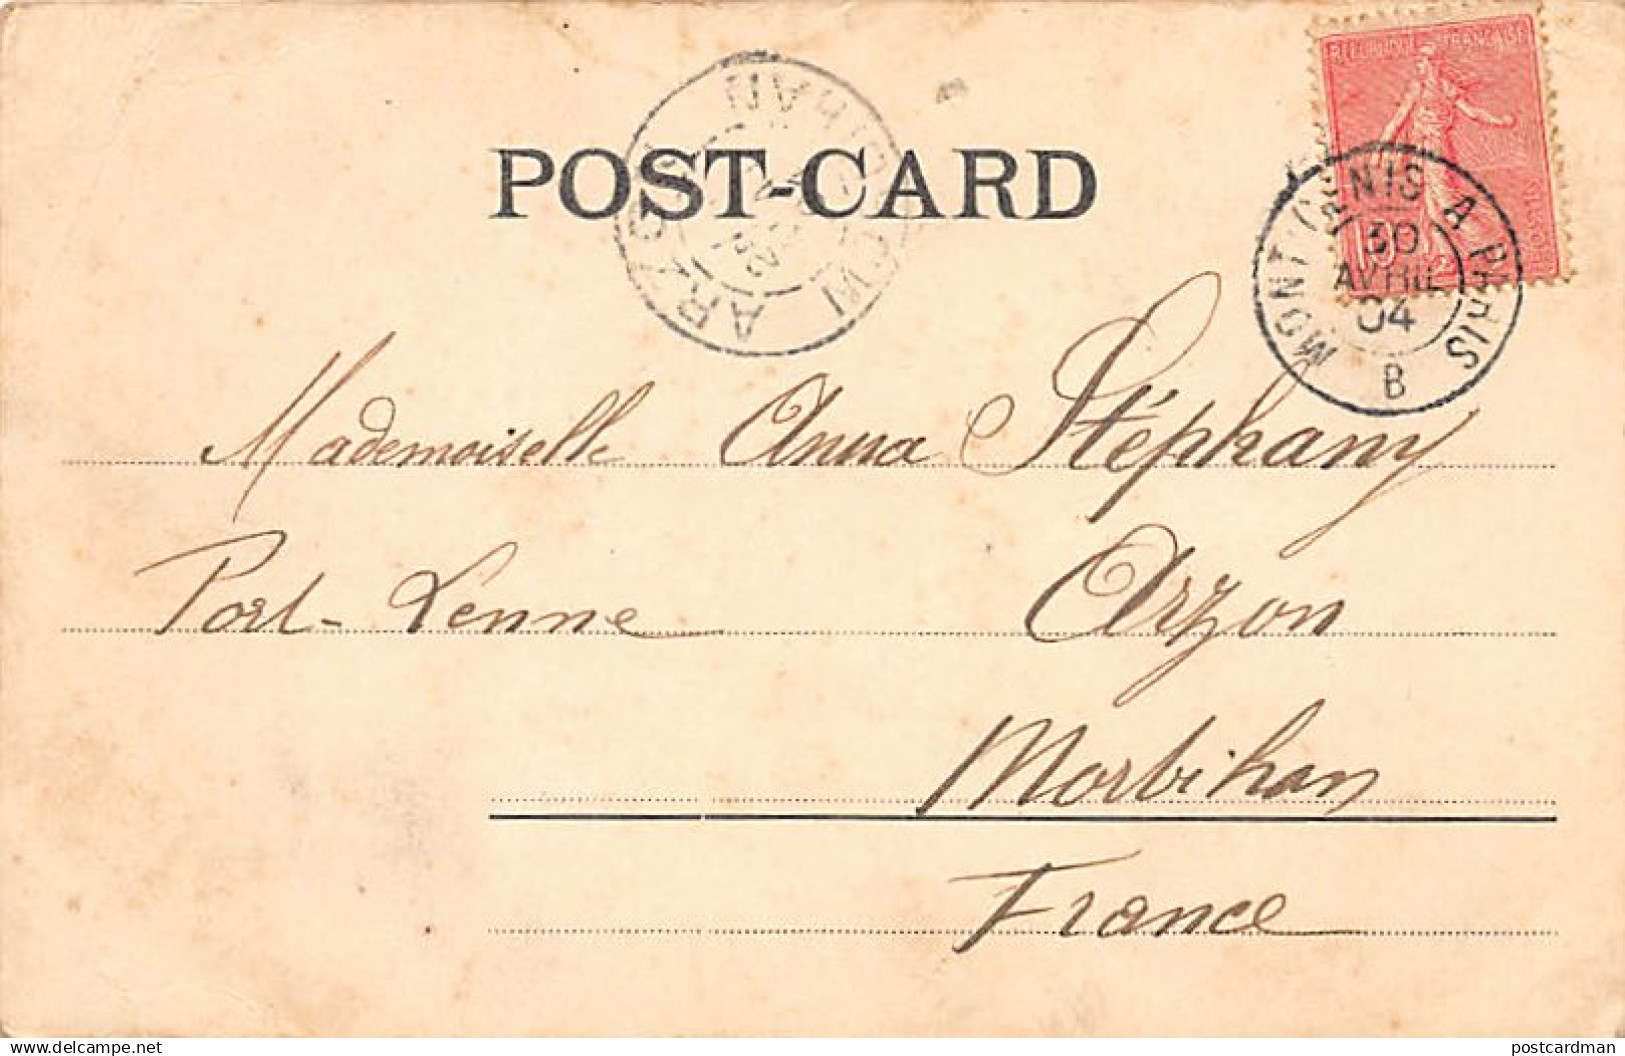 POST-CARD
REPUBLIQUE FRANÇAISE
10
POSTES
MONT CENIS A PARIS
30
AVRIL
04
B
ARZON
MORBIHAN
Mademoiselle Anna Stéphany
Port-Lenne Arzon
Morbihan
France
delcampe.net
postcardman